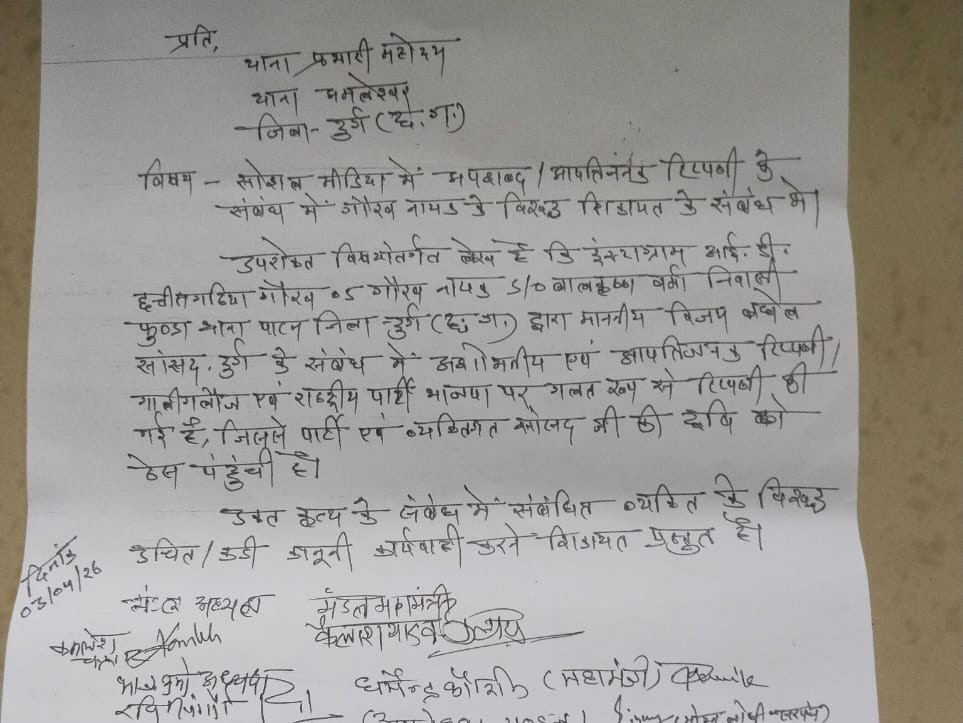 प्रति,
थाना प्रभारी महोदय
थाना
जिला - दुर्ग (छ.ग.)
विषय - सोशल मीडिया में अपशब्द / आपत्तिजनक टिप्पणी के
संबंध में गौरव नायक के विरूद्ध शिकायत के संबंध में।
उपरोक्त विषयांतर्गत लेख है कि इंस्टाग्राम आई. डी.
छत्तीसगढिया गौरव गौरव नायक S/o बालकृष्ण वर्मा निवासी
फुण्डा थाना पाटन जिला - दुर्ग (छ.ग.) द्वारा माननीय विजय बघेल
सांसद दुर्ग के संबंध में अशोभनीय एवं आपत्तिजनक टिप्पणी /
गालीगलौज एवं राष्ट्रीय पार्टी भाजपा पर गलत रूप से टिप्पणी की
गई है, जिससे पार्टी एवं व्यक्तिगत सांसद जी की छवि को
ठेस पंहुची है।
उक्त कृत्य के संबंध में संबंधित व्यक्ति के विरूद्ध
उचित / कडी कानूनी कार्यवाही करने शिकायत प्रस्तुत है।
दिनांक
03/04/26
मंडल अध्यक्ष
मंडल महामंत्री
कैलाश यादव
कमलेश
धर्मेन्द्र कौशिक (महामंत्री)
रवि